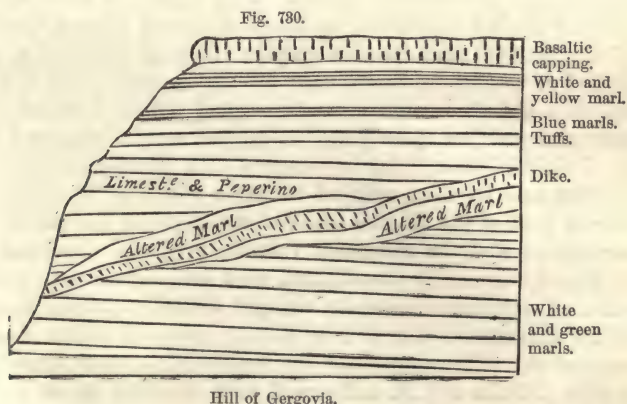 Fig. 730.
Basaltic
capping.
White and
yellow marl.
Blue marls.
Tuffs.
Limest.e & Peperino
Dike.
Altered Marl
Altered Marl
White
and green
marls.
Hill of Gergovia.